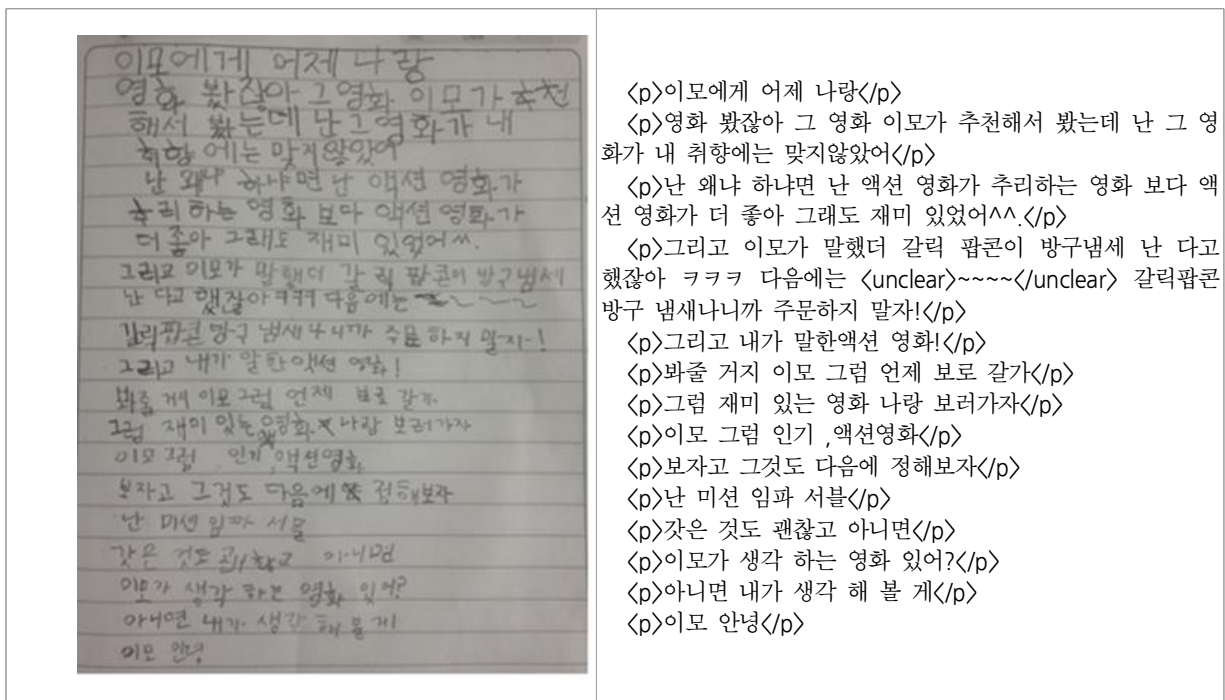 이모에게 어제 나랑
영화 봤잖아 그영화 이모가 추천
해서 봤는데 난그영화가 내
취향 에는 맞지않았어
난 왜냐 하냐면 난 액션 영화가
추리하는 영화 보다 액션 영화가
더 좋아 그래도 재미 있었어^^.
그리고 이모가 말했더 갈릭 팝콘이 방구냄세
난 다고 했잖아ㅋㅋㅋ 다음에는 ~~~~
갈릭팝콘 방구 냄새나니까 주문하지 말자!
그리고 내가 말한액션 영화!
봐줄 거지 이모그럼 언제 보로 갈가
그럼 재미 있는 영화 나랑 보러가자
이모그럼 인기 ,액션영화
보자고 그것도 다음에 정해보자
난 미션임파 서블
갓은 것도 괜찮고 아니면
이모가 생각 하는 영화 있어?
아니면 내가 생각 해 볼게
이모 안녕
<p>이모에게 어제 나랑</p>
<p>영화 봤잖아 그 영화 이모가 추천해서 봤는데 난 그 영
화가 내 취향에는 맞지않았어</p>
<p>난 왜냐 하냐면 난 액션 영화가 추리하는 영화 보다 액
션 영화가 더 좋아 그래도 재미 있었어^^.</p>
<p>그리고 이모가 말했더 갈릭 팝콘이 방구냄세 난 다고
했잖아 ㅋㅋㅋ 다음에는 <unclear>~~~~</unclear> 갈릭팝콘
방구 냄새나니까 주문하지 말자!</p>
<p>그리고 내가 말한액션 영화!</p>
<p>봐줄 거지 이모 그럼 언제 보로 갈가</p>
<p>그럼 재미 있는 영화 나랑 보러가자</p>
<p>이모 그럼 인기 ,액션영화</p>
<p>보자고 그것도 다음에 정해보자</p>
<p>난 미션 임파 서블</p>
<p>갓은 것도 괜찮고 아니면</p>
<p>이모가 생각 하는 영화 있어?</p>
<p>아니면 내가 생각 해 볼 게</p>
<p>이모 안녕</p>